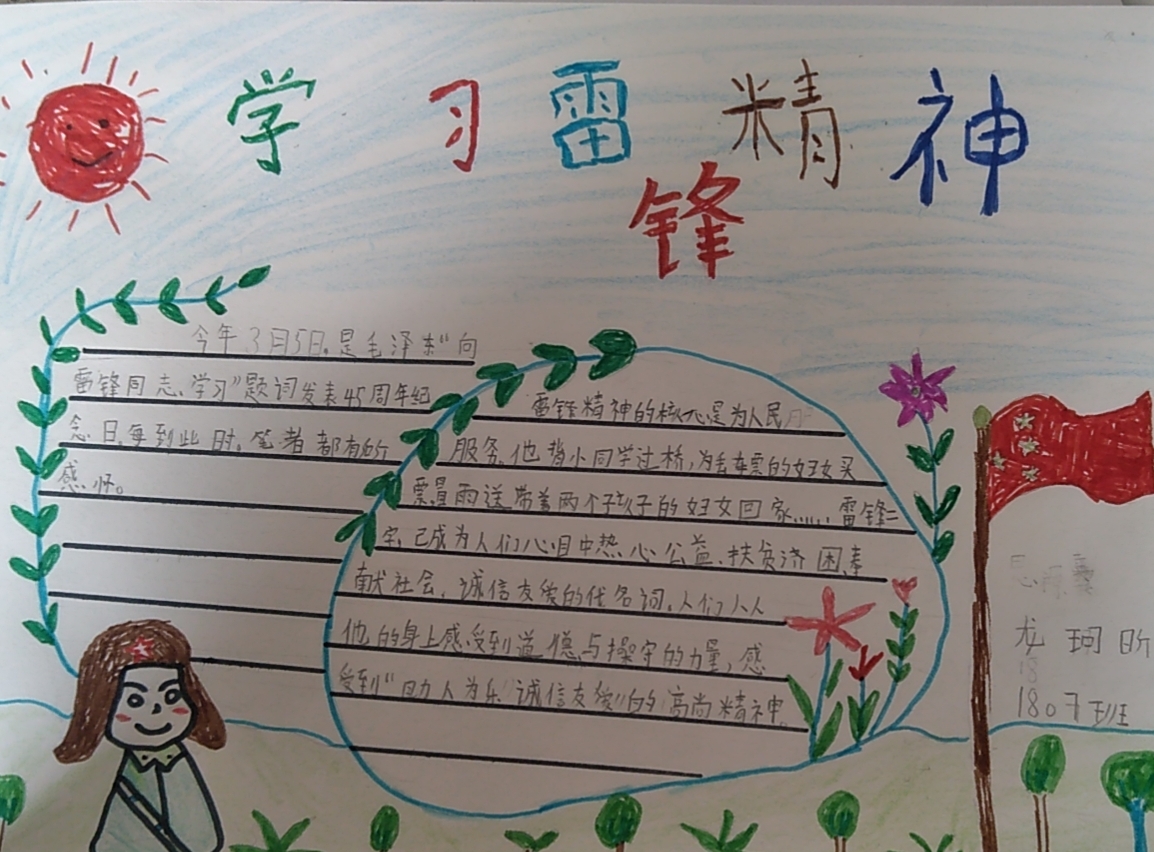 学习雷锋精神
今年3月5日,是毛泽东"向
雷锋同志、学习"题词发表45周年纪
念日,每到此时,笔者都有所
感怀。
雷锋精神的核心是为人民
服务,他背小同学过桥,为丢车票的妇女买
票,冒雨送带着两个孩子的妇女回家……雷锋二
字,已成为人们心目中热心公益、扶贫济困、奉
献社会,诚信友爱的代名词,人们从
他的身上感受到道德与操守的力量,感
受到"助人为乐""诚信友爱"的高尚精神。
龙珂昕
18
1807班